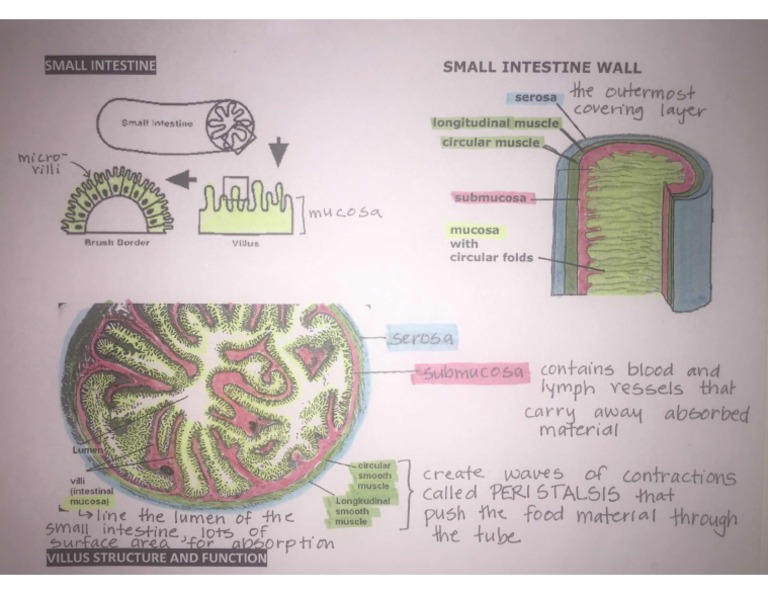 SMALL INTESTINE
Small Intestine
micro-
villi
mucosa
Brush Border
Villus
SMALL INTESTINE WALL
serosa
the outermost
covering layer
longitudinal muscle
circular muscle
submucosa
mucosa
with
circular folds
serosa
submucosa
contains blood and
lymph vessels that
carry away absorbed
material
Lumen
villi
(intestinal
mucosa)
↳ line the lumen of the
small intestine, lots of
surface area for absorption
circular
smooth
muscle
Longitudinal
smooth
muscle
create waves of contractions
called PERISTALSIS that
push the food material through
the tube
VILLUS STRUCTURE AND FUNCTION